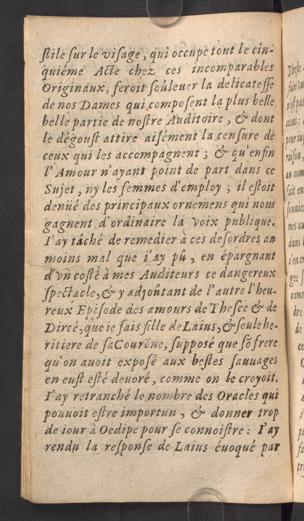 stile sur le visage, qui occupe tout le cin-
quiéme Acte chez ces incomparables
Originaux, feroit soûlever la delicatesse
de nos Dames qui composent la plus belle
belle partie de nostre Auditoire, & dont
le dégoust attire aisément la censure de
ceux qui les accompagnent ; & qu'enfin
l'Amour n'ayant point de part dans ce
Sujet, ny les femmes d'employ ; il estoit
denüé des principaux ornemens qui nous
gagnent d'ordinaire la voix publique.
I'ay tâché de remedier à ces desordres au
moins mal que i'ay pû, en épargnant
d'vn costé à mes Auditeurs ce dangereux
spectacle, & y adjoûtant de l'autre l'heu-
reux Episode des amours de Thesée & de
Dircé, que ie fais fille de Laius, & seule he-
ritiere de sa Courône, supposé que sõ frere
qu'on auoit exposé aux bestes sauuages
en eust esté deuoré, comme on le croyoit.
I'ay retranché le nombre des Oracles qui
pouuoit estre importun, & donner trop
de iour à Oedipe pour se connoistre : I'ay
rendu la response de Laius éuoqué par